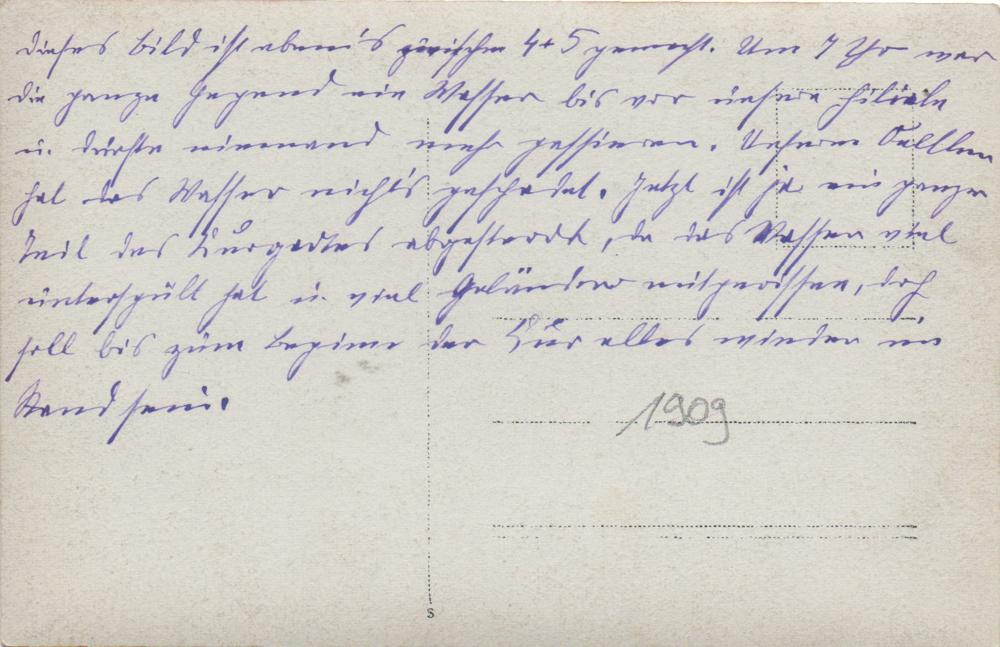 Dieses Bild ist abends zwischen 4 + 5 gemacht. Um 7 Uhr war
die ganze Gegend ein Wasser bis vor unsere Filiale
u. durfte niemand mehr passieren. Unseren Quellen
hat das Wasser nichts geschadet. Jetzt ist ja ein ganzer
Teil des abgesperrt, da das Wasser viel
unterspült hat u. viel Geländer mitgerissen, doch
soll bis zum Beginne der Kur alles wieder im
Stand sein.
1909
S